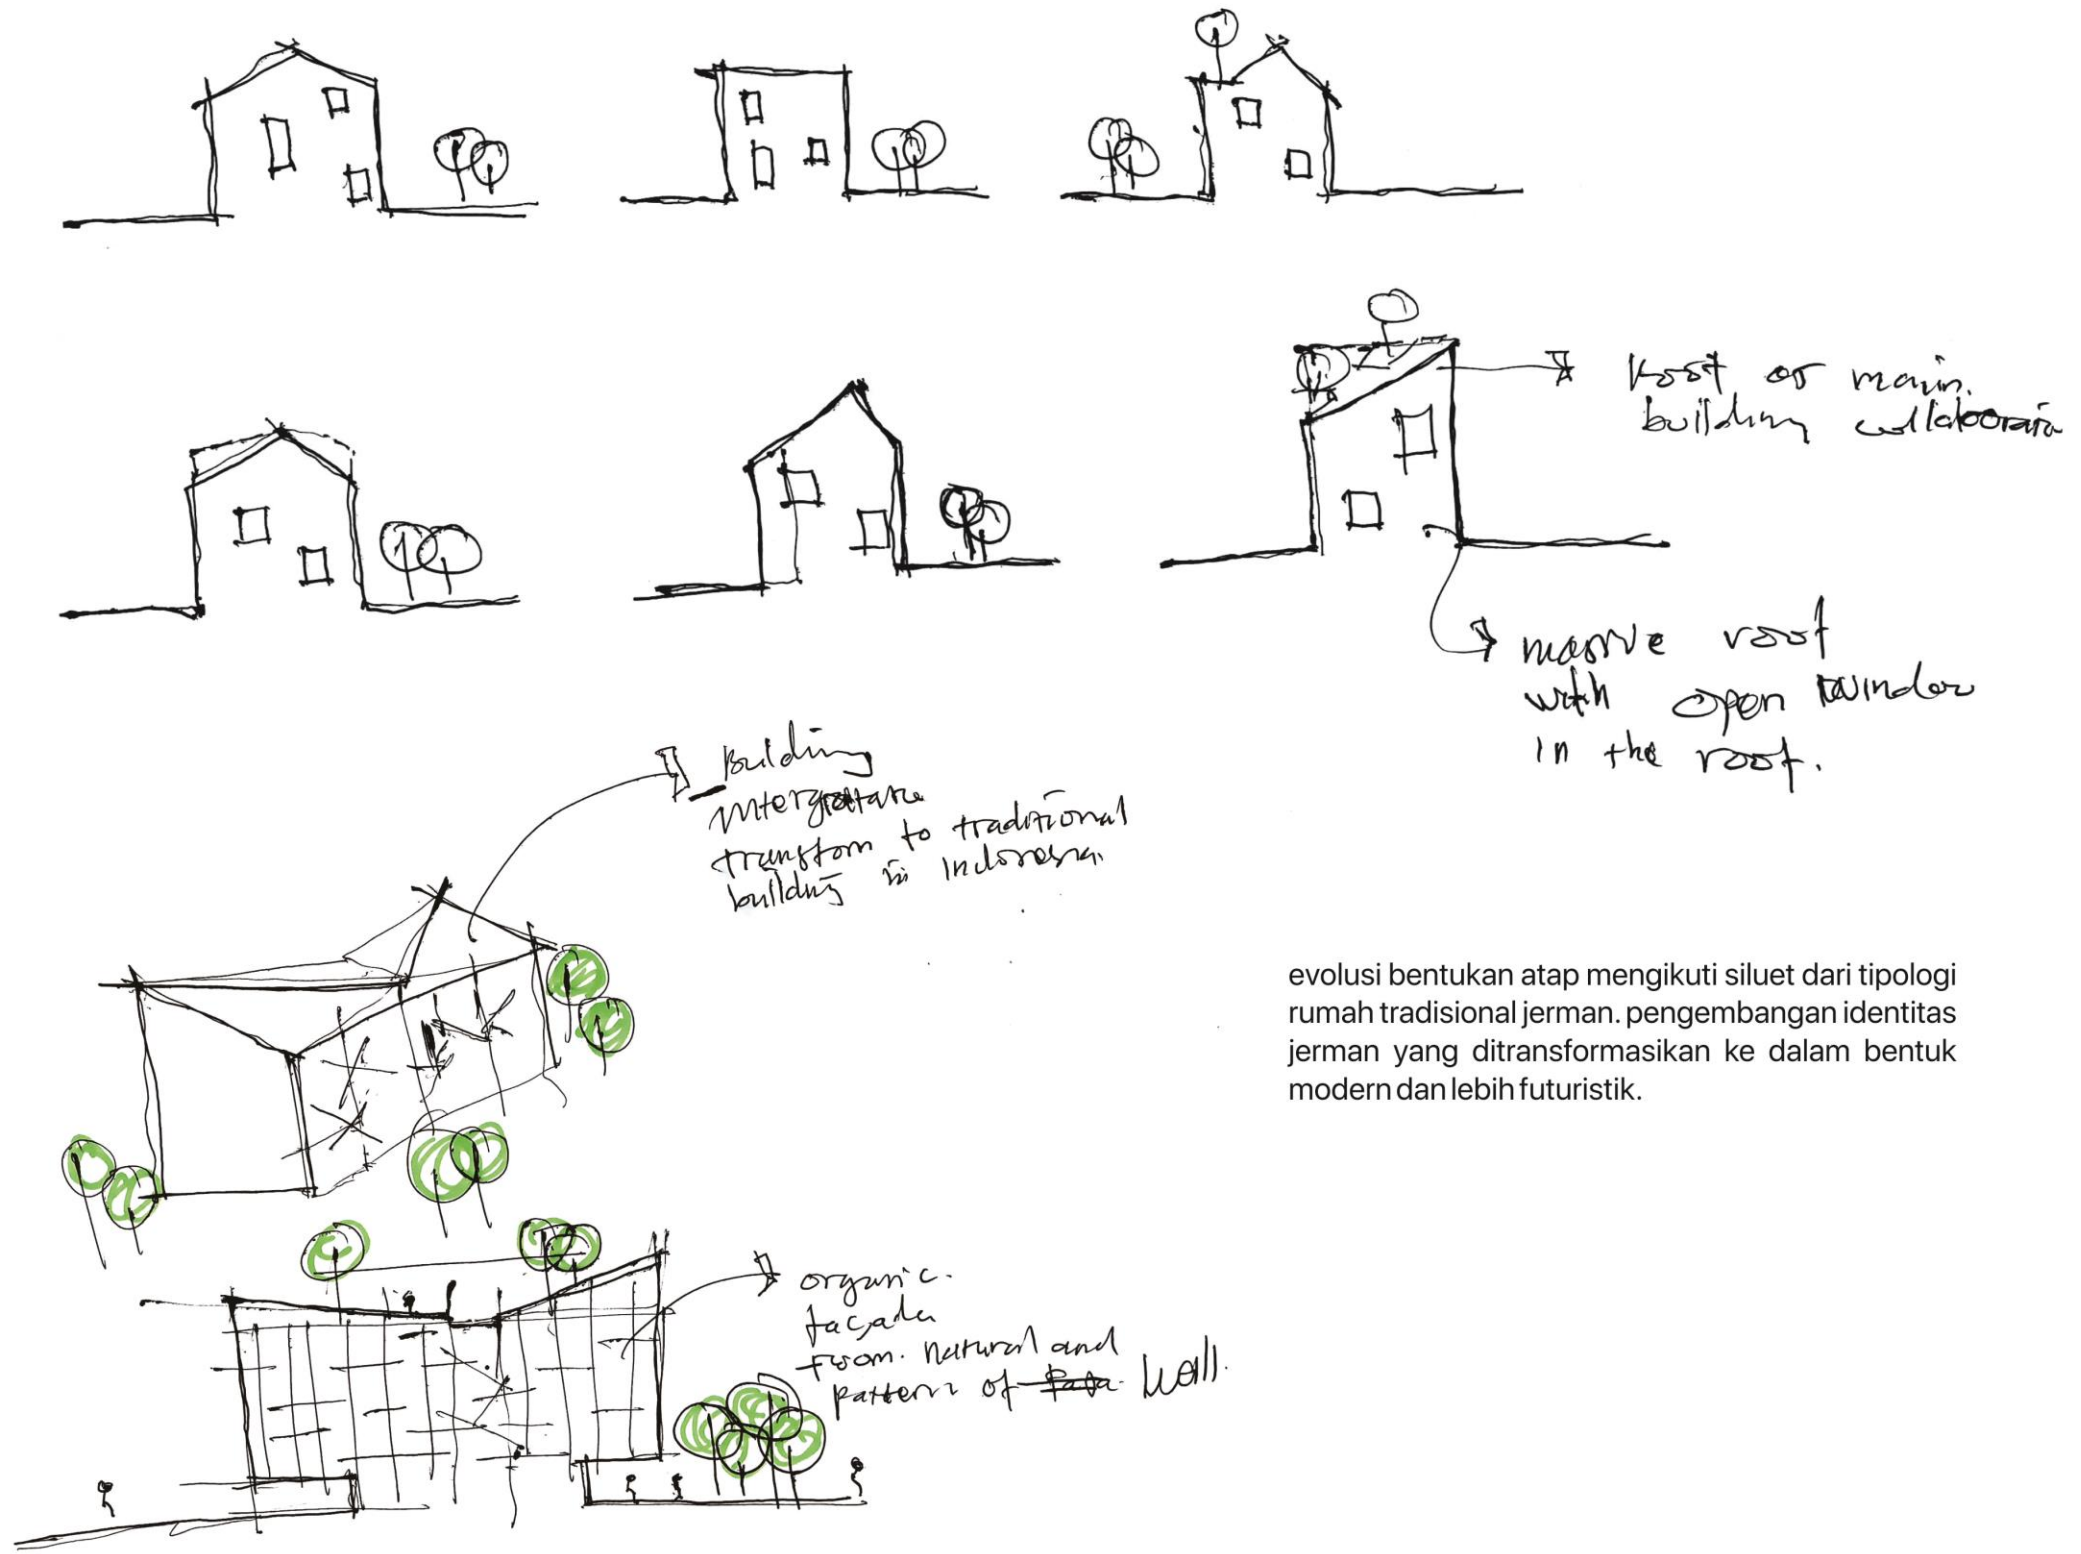 Roof of main.
building collaboratio
massive roof
with open window
in the roof.
Building
transform to traditional
building in Indonesia.
evolusi bentukan atap mengikuti siluet dari tipologi
rumah tradisional jerman. pengembangan identitas
jerman yang ditransformasikan ke dalam bentuk
modern dan lebih futuristik.
organic.
façade
from. natural and
pattern of wall.